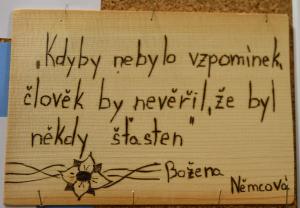 „Kdyby nebylo vzpomínek,
člověk by nevěřil, že byl
někdy šťasten"
Božena
Němcová